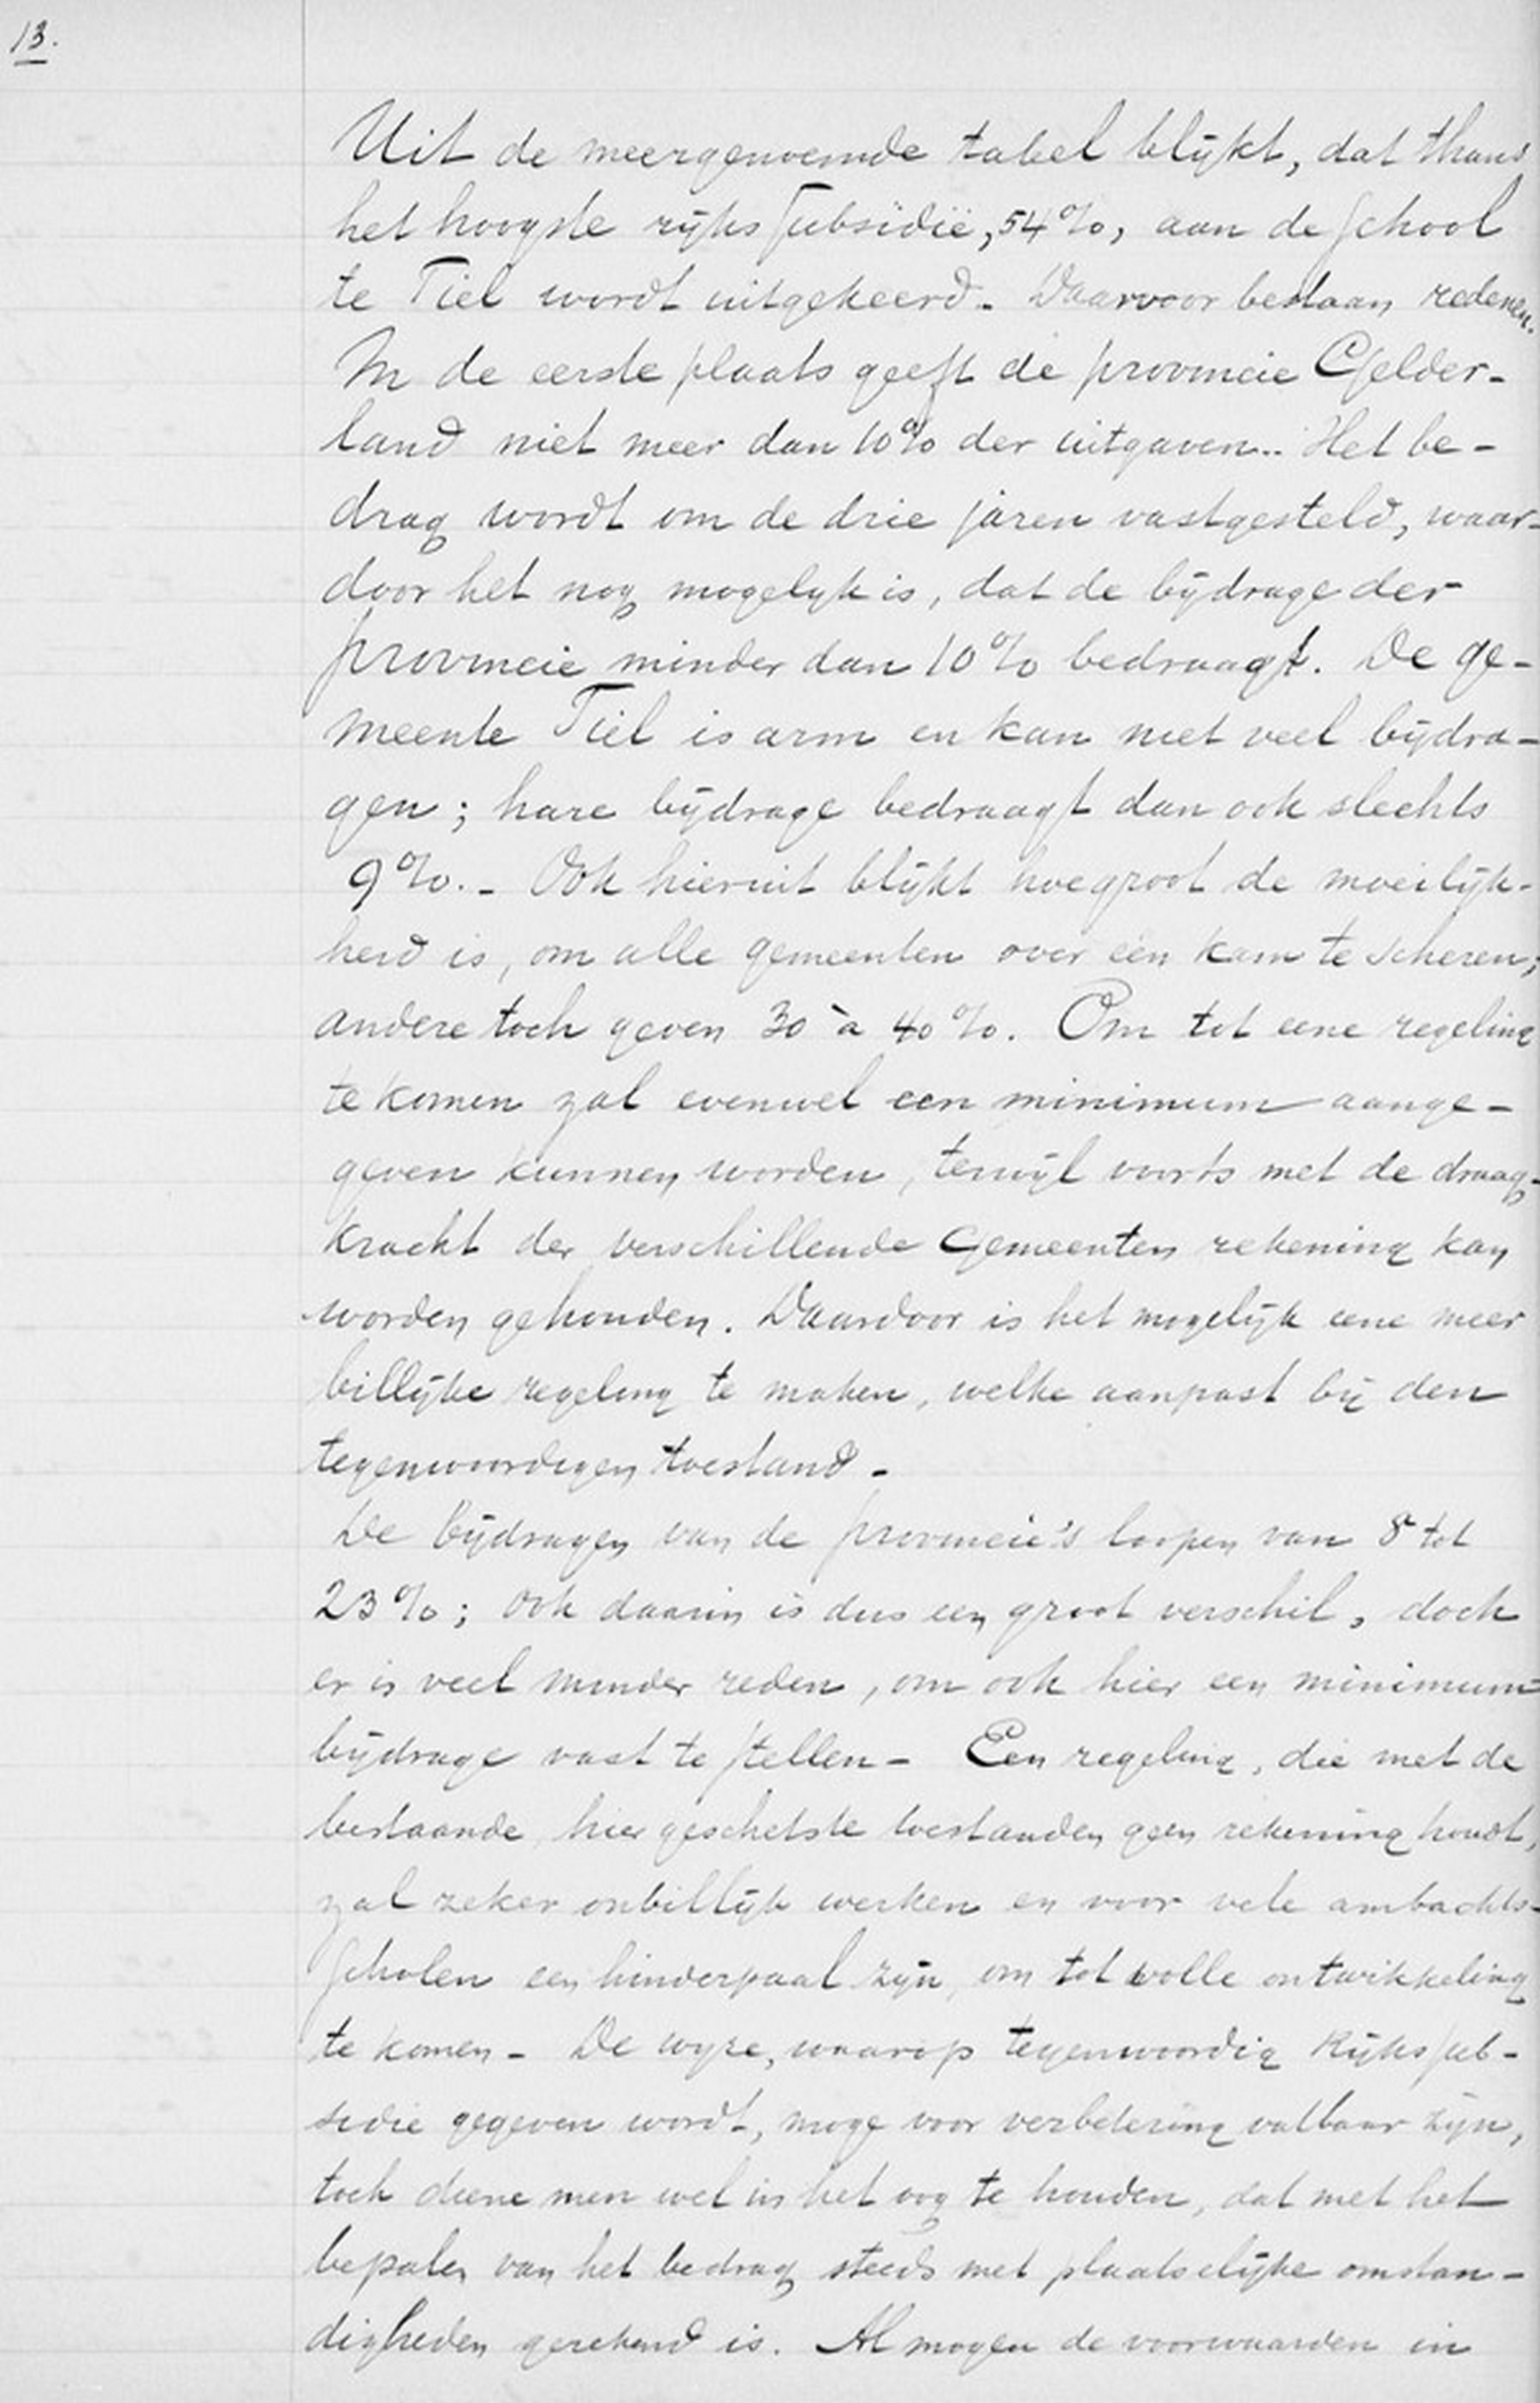 13.
Uit de meergenoemde tabel blijkt, dat thans
het hoogste rijkssubsidie, 54%, aan de school
te Tiel wordt uitgekeerd. Daarvoor bestaan redenen.
In de eerste plaats geeft de provincie Gelder-
land niet meer dan 10% der uitgaven. Het be-
drag wordt om de drie jaren vastgesteld, waar-
door het nog mogelijk is, dat de bijdrage der
provincie minder dan 10% bedraagt. De ge-
meente Tiel is arm en kan niet veel bijdra-
gen; hare bijdrage bedraagt dan ook slechts
9%. - Ook hieruit blijkt hoe groot de moeilijk-
heid is, om alle gemeenten over één kam te scheren;
andere toch geven 30 à 40%. Om tot eene regeling
te komen zal evenwel een minimum aange-
geven kunnen worden, terwijl voorts met de draag-
kracht der verschillende Gemeenten rekening kan
worden gehouden. Daardoor is het mogelijk eene meer
billijke regeling te maken, welke aanpast bij den
tegenwoordigen toestand -
De bijdragen van de provincie's loopen van 8 tot
23%; ook daarin is dus een groot verschil, doch
er is veel minder reden, om ook hier een minimum
bijdrage vast te stellen - Een regeling, die met de
bestaande, hier geschetste toestanden geen rekening houdt,
zal zeker onbillijk werken en voor vele ambachts-
scholen een hinderpaal zijn, om tot volle ontwikkeling
te komen - De wijze, waarop tegenwoordig Rijkssub-
sidie gegeven wordt, moge voor verbetering vatbaar zijn,
toch diene men wel in het oog te houden, dat met het
bepalen van het bedrag steeds met plaatselijke omstan-
digheden gerekend is. Al mogen de voorwaarden in